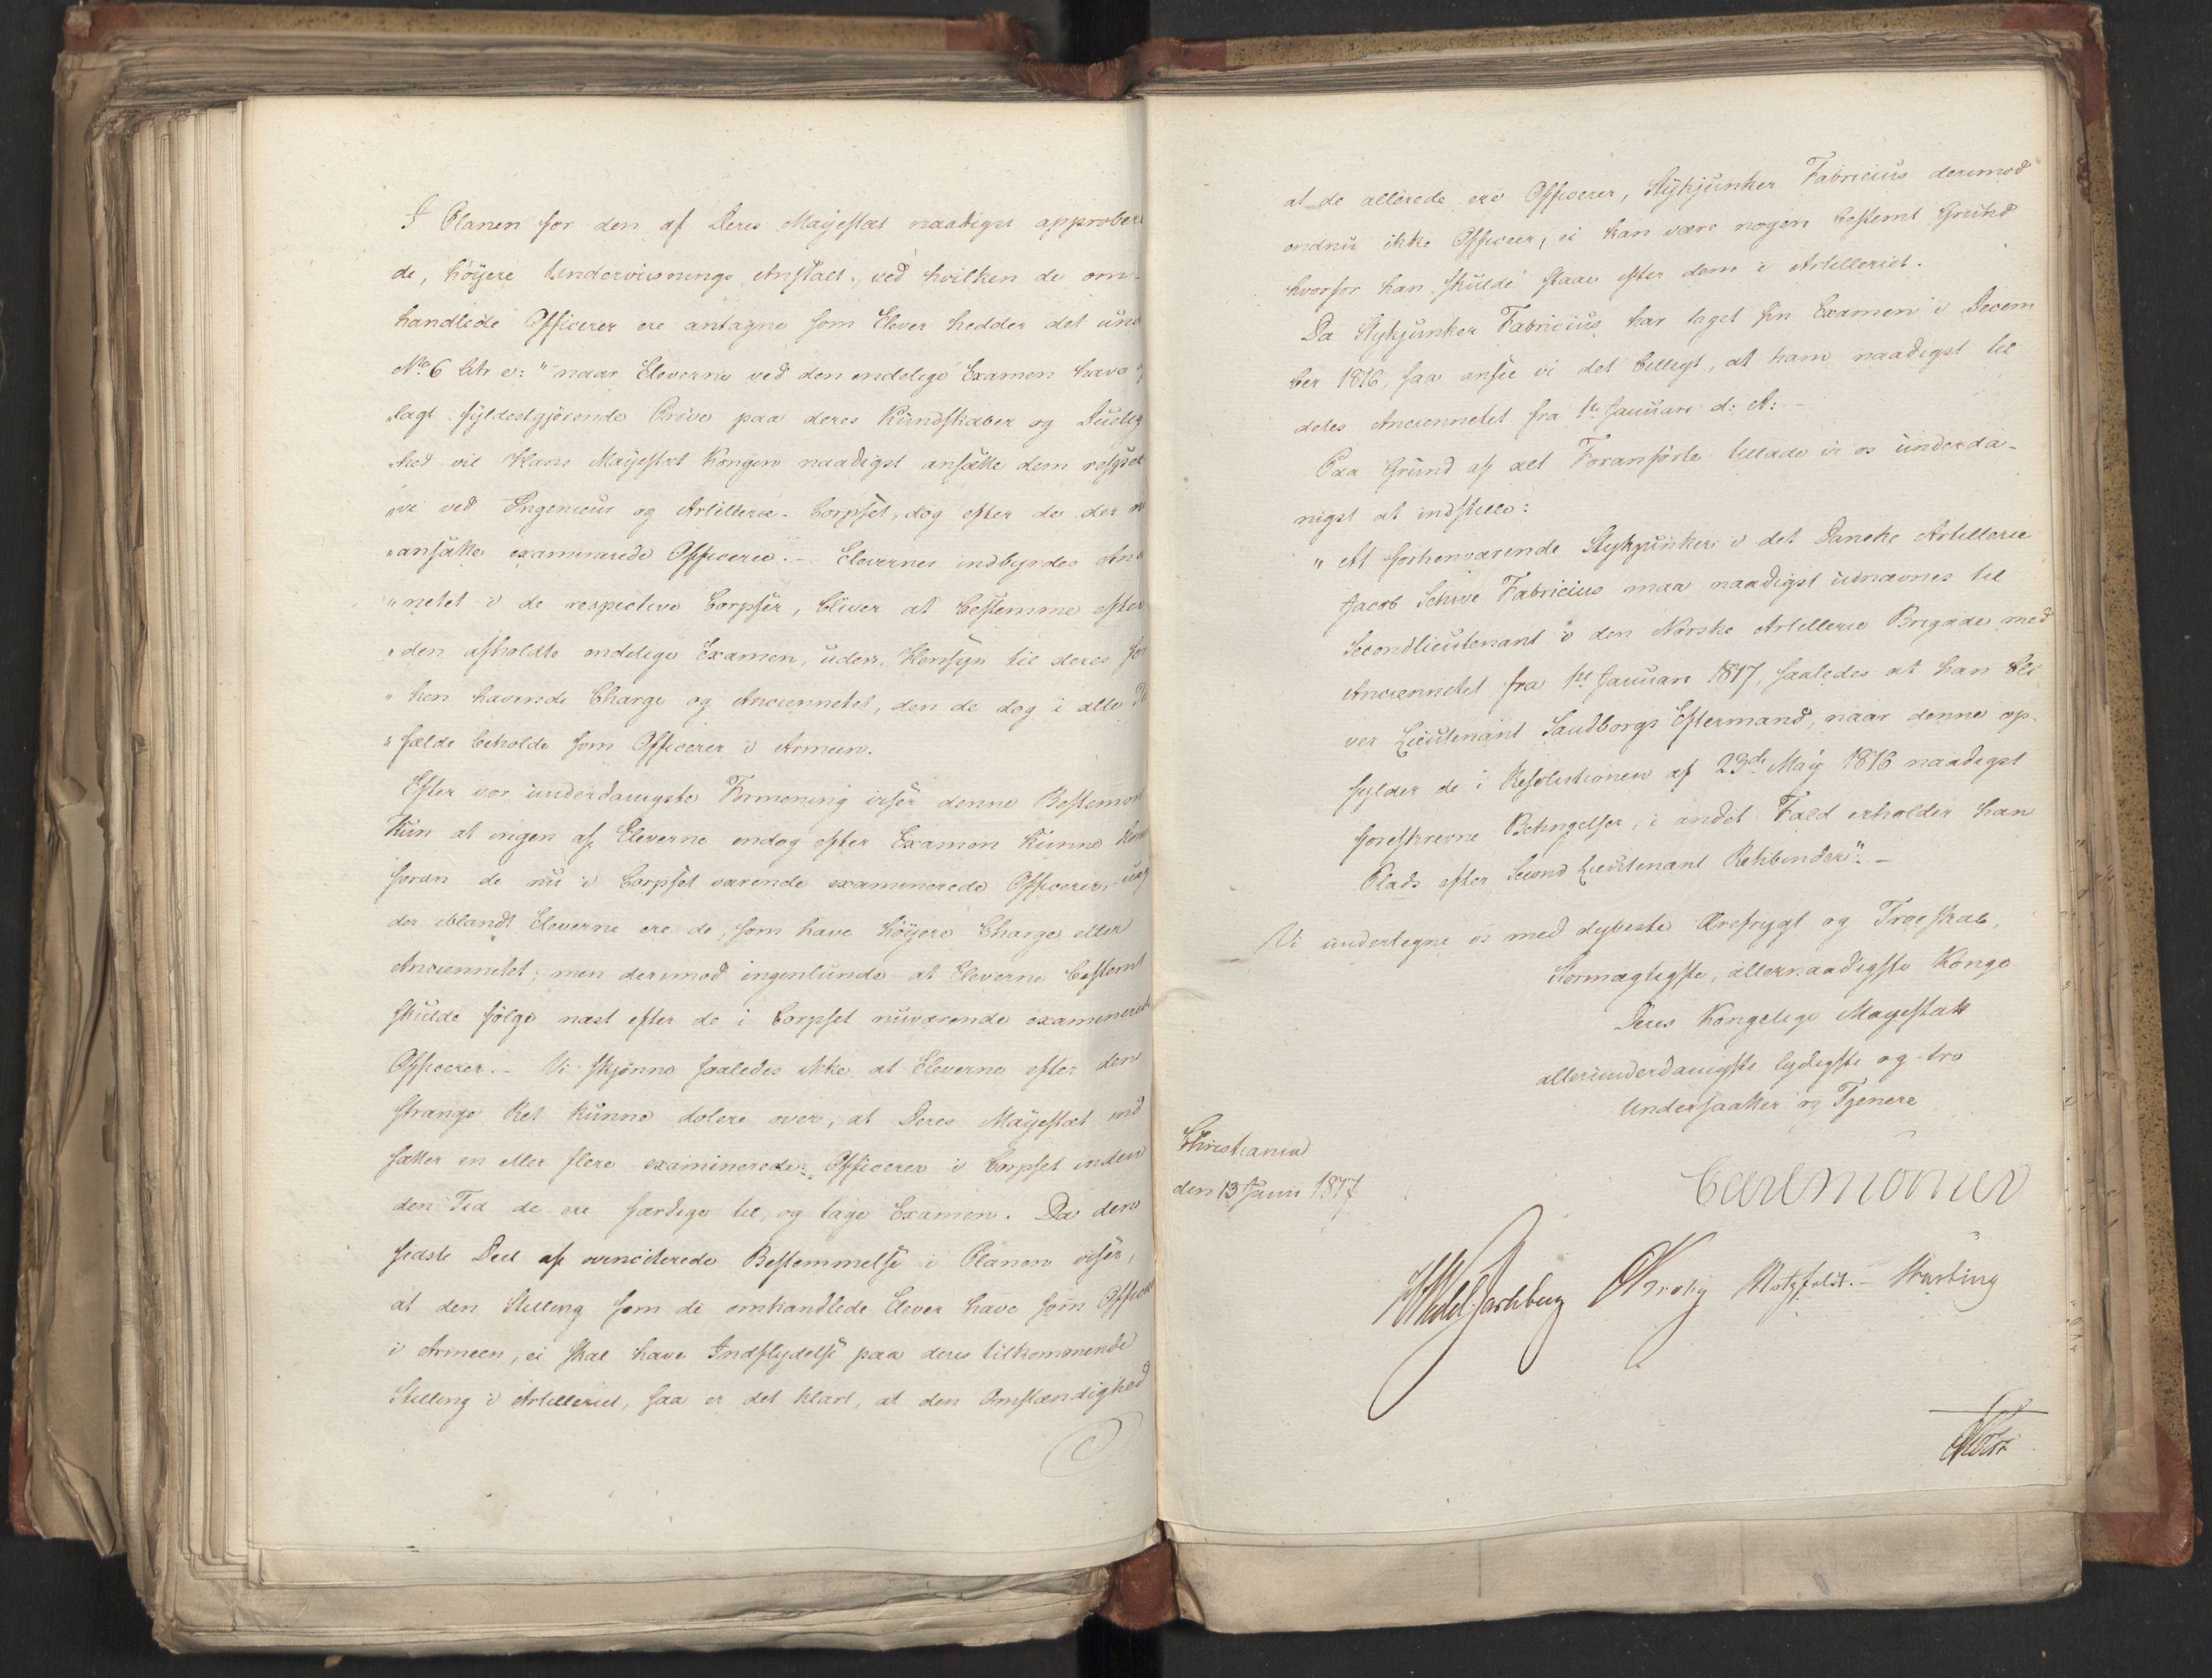 I Planen for den af Deres Mayestæt naadigst approbere
de, høyere Underviisnings Anstalt, ved hvilken de om-
handlede Officerer ere antagne som Elever hedder det und
No 6 Litr e: "naar Eleverne ved den endelige Examen have
"lagt fyldestgjørende Prøve paa deres Kundskaber og Duelig
"hed vil Hans Mayestæt Kongen naadigst ansætte dem respect
"ve ved Ingenieur og Artillerie-Corpset, dog efter de der
"ansatte examinerede Officerer. - Elevernes indbyrdes An
"netet i de respective Corpser, bliver at bestemme efter
"den afholdte endelige Examen, uden Hensyn til deres for
"hen havende Charge og Anciennetet, den de dog i alle
"fælde beholde som Officerer i Armeen.
Efter vor underdanigste Formening viser denne Bestemm
kun at ingen af Eleverne endog efter Examen kunne
foran de nu i Corpset værende examinerede Officerer,
der iblandt Eleverne ere de, som have høyere Charge eller
Anciennetet; men derimod ingenlunde at Eleverne bestemt
skulde følge næst efter de i Corpset nuværende examinerede
Officerer. - Vi skjønne saaledes ikke at Eleverne efter den
strænge Ret kunne dolere over, at Deres Mayestæt ind
sætter en eller flere examinerede Officerer i Corpset inden
den Tid de ere færdige til, og tage Examen. Da den
sidste Deel af ovenciterede Bestemmelse i Planen viser,
at den Stilling som de omhandlede Elever have som Officer
i Armeen, ei skal have Indflydelse paa deres tilkommende
Stilling i Artilleriet, saa er det klart, at den Omstændighed
at de allerede ere Officerer, Stykjunker Fabricius derimod
endnu ikke Officeer, ei kan være nogen bestemt Grund
hvorfor han skulde staae efter dem i Artilleriet.
Da Stykjunker Fabricius har taget sin Examen i Decem
ber 1816, saa ansee vi det billigt, at ham naadigst til
deles Anciennetet fra 1ste Januari d: A: -
Paa Grund af alt Foranførte tillade vi os underda-
nigst at indstille:
" At forhenværende Stykjunker i det Danske Artillerie
Jacob Schive Fabricius maa naadigst udnævnes til
Secondlieutenant i den Norske Artillerie Brigade med
Anciennetet fra 1ste Januari 1817, saaledes at han bli
ver Lieutenant Sandborgs Eftermand, naar denne op-
fylder de i Resolutionen af 23de May 1816 naadigst
foreskrevne Betingelser, i andet Fald erholder han
Plads efter Second Lieutenant Rehbinder". -
Vi undertegne os med dybeste Ærefrygt og Troeskab,
Stormægtigste, allernaadigste Konge
Deres Kongelige Mayestæts
allerunderdanigste lydigste og tro
Undersaatter og Tjenere
Christiania
den 13 Juni 1817
Carl Mörner
HWedel Jarlsberg Krohg Motzfeldt. - Hasting